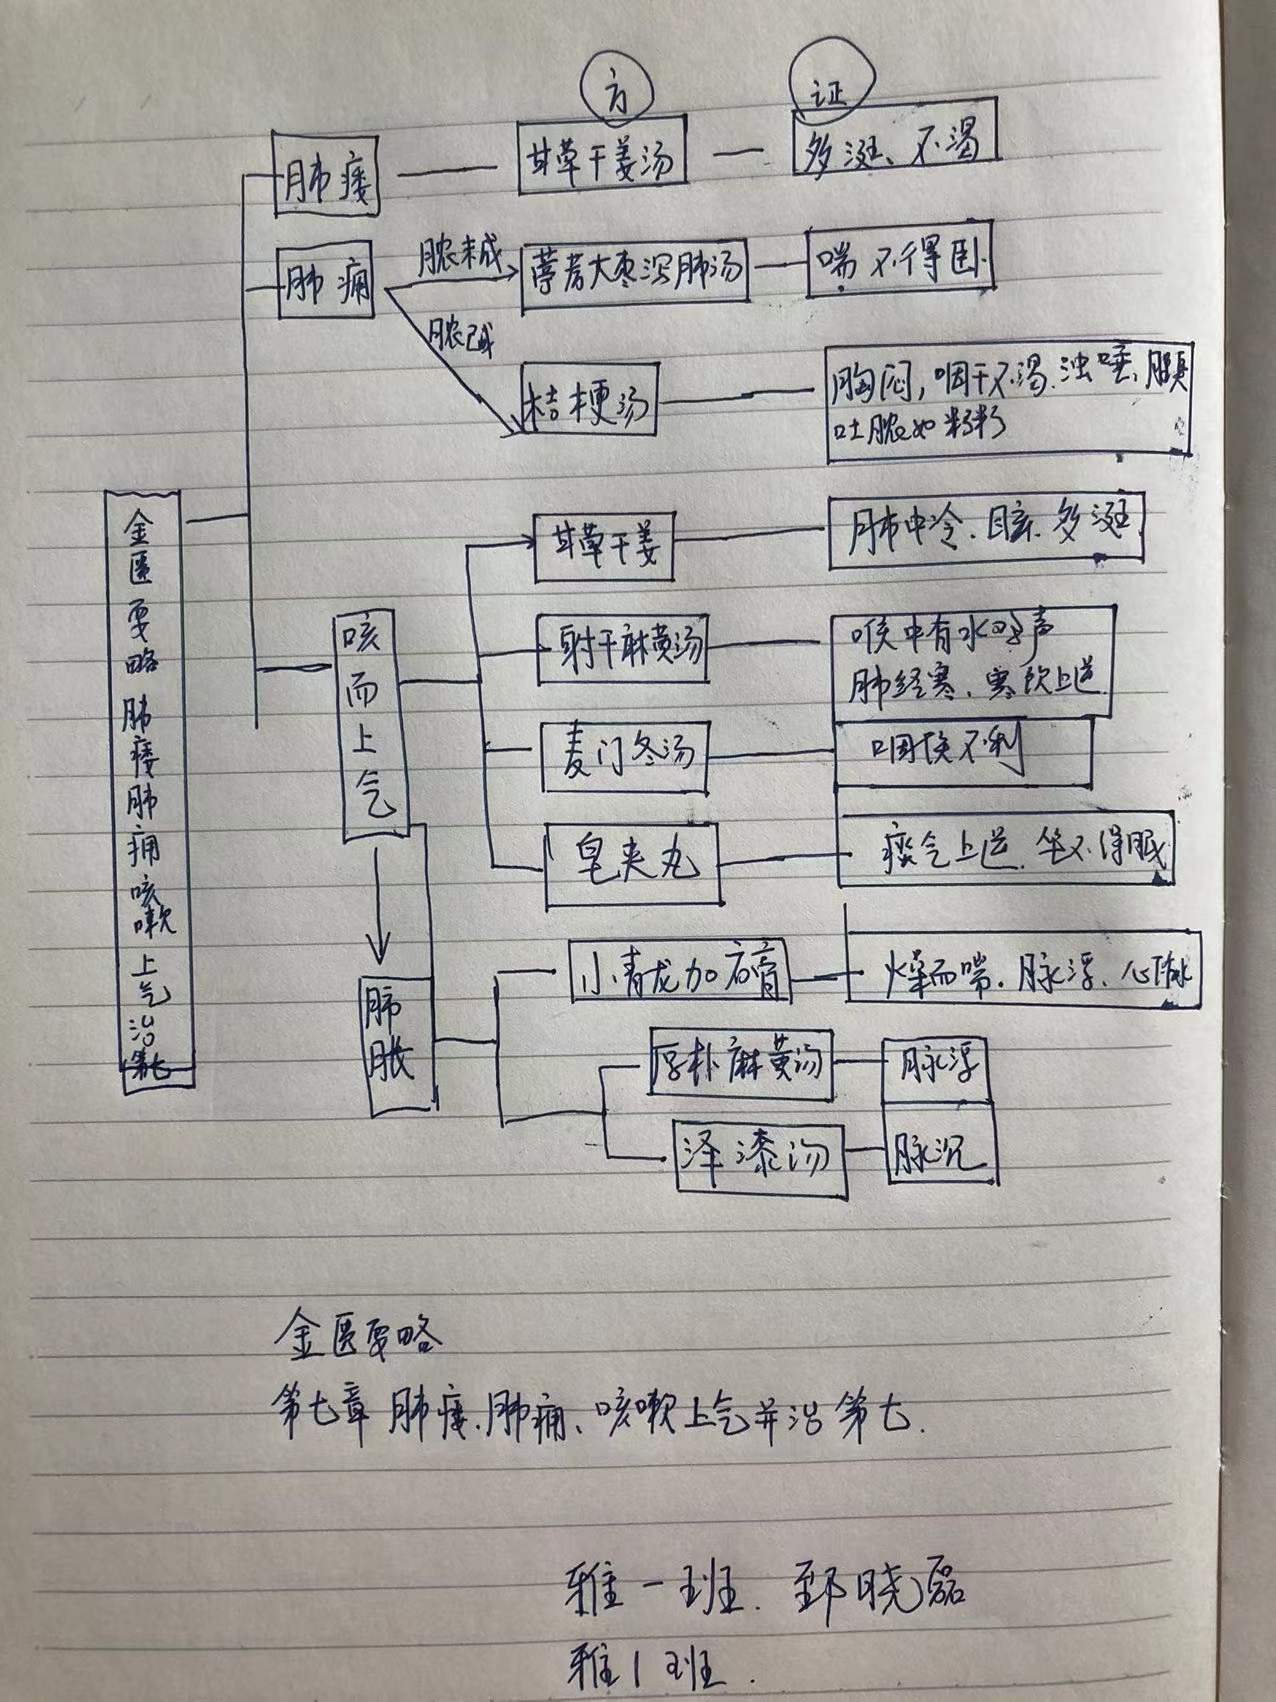 方
证
肺痿
甘草干姜汤
多涎、不渴
肺痈
脓未成
葶苈大枣泻肺汤
喘不得卧.
脓已成
桔梗汤
胸闷,咽干不渴.浊唾、腥臭
吐脓如米粥
金匮要略肺痿肺痈咳嗽上气治第七
咳而上气
甘草干姜
肺中冷.目眩.多涎
射干麻黄汤
喉中有水鸡声
肺经寒、寒饮上逆
麦门冬汤
咽喉不利
皂夹丸
痰气上逆.坐不得眠
肺胀
小青龙加石膏
燥而喘.脉浮.心下水
厚朴麻黄汤
脉浮
泽漆汤
脉沉
金匮要略
第七章 肺痿、肺痈、咳嗽上气并治第七.
雅一班. 郅晓磊
雅1班.